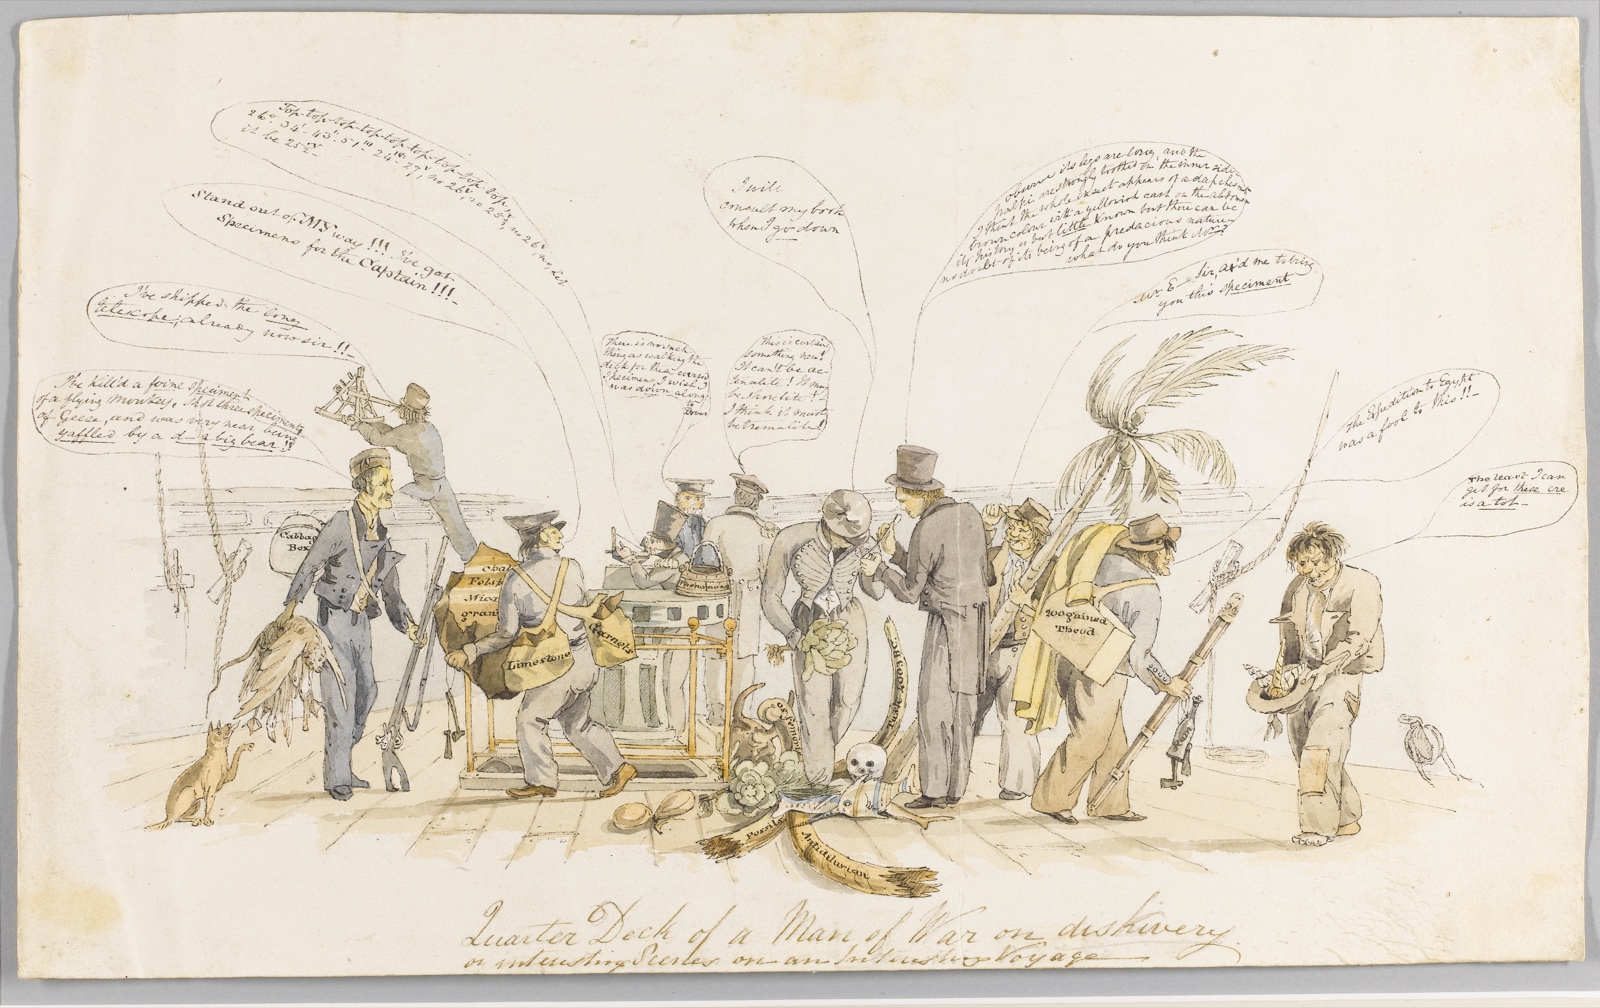 Top-top-top-top-top-top-top-top-top top
26° 34' 43" 51''' 24 27, no 26, no 25, no 26, no, let
it be 25½
Stand out of MY way!!! I've got
Specimens for the Captain!!!
I've shipped the long
teleskope, already now sir!!
I've kill'd a foine speciment
of a flying Monkey. Shot three speciments
of Geese, and was very near being
yaffled by a d— a big bear!!
There is no such
thing as walking the
deck for these cursed
specimens, I wish I
was down along
to
This is certainly
something new!
It can't be ac-
tenalite! It may
be
I think it must
be Tremalite!
I will
consult my book
when I go down
its legs are long, and the
Palpi are strongly toothed on the inner side
I think the whole insect appears of a dark chesnut
brown colour with a yellowish cast on the abdomen
its history is but little known but there can be
no doubt of its being of a predacious nature
what do you think
Mr. E— Sir, ax'd me to bring
you this speciment
The Expedition to Egypt
was a fool to this!!
The least I can
get for these ere
is a tot
Cabbage
Box
Chal
Felsp
Mica
gran
Limestone
Garnets
Fossil
Antidiluvian
Tusk
Quarter Deck of a Man of War on diskivery
or interesting Scenes on an Interesting Voyage